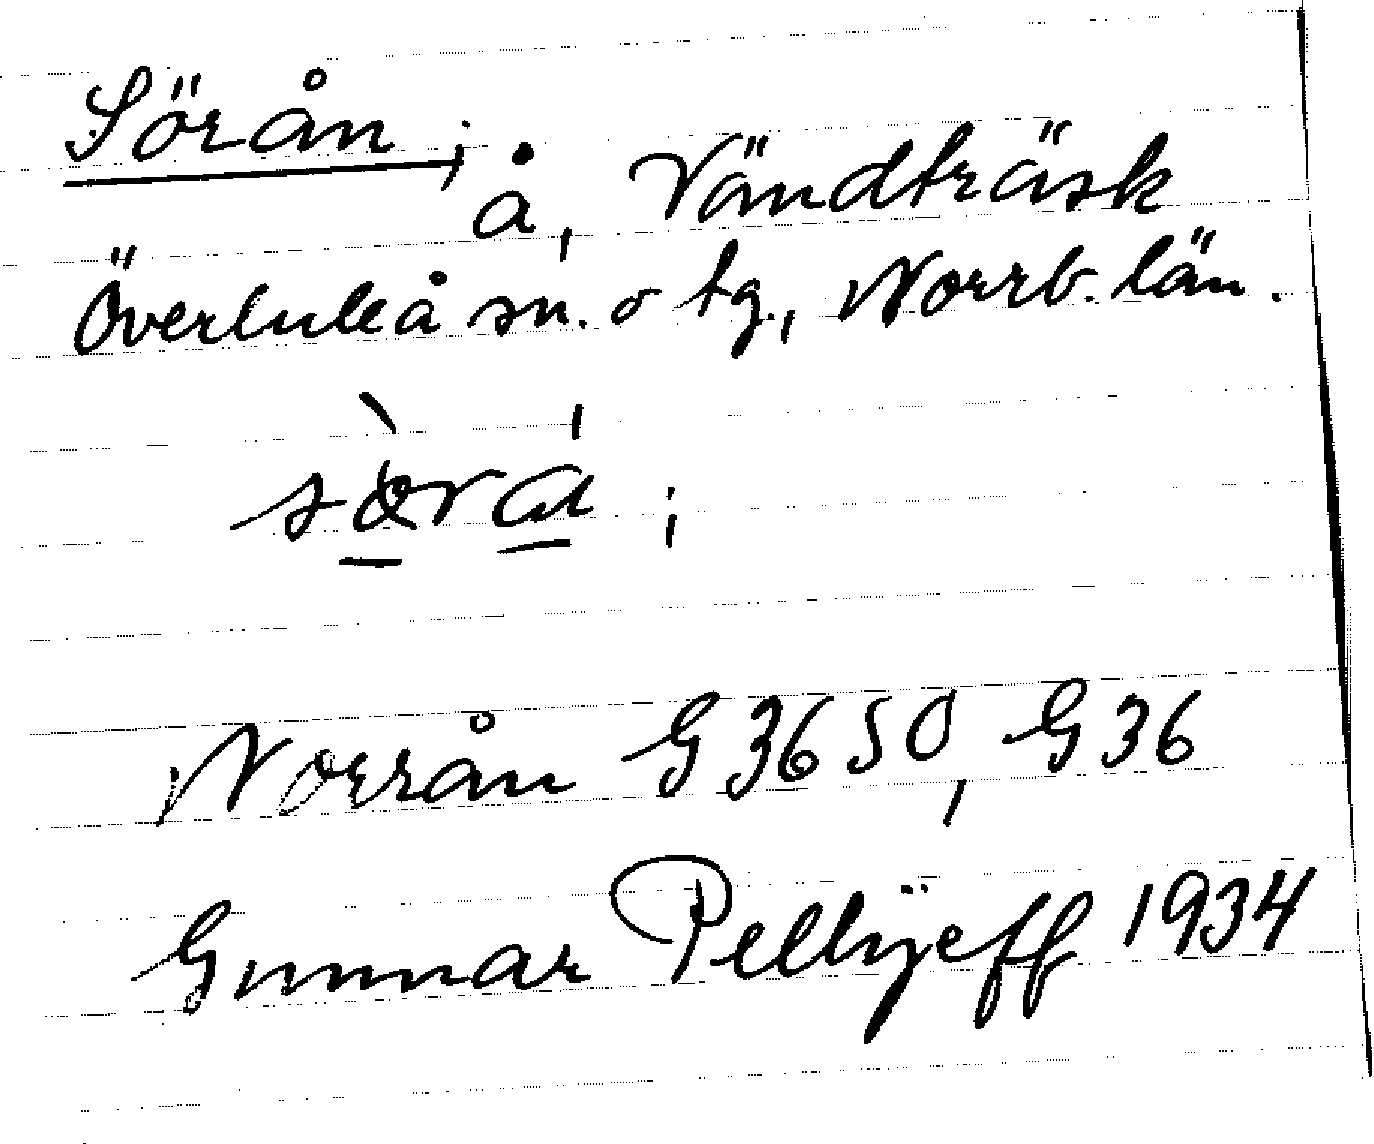 Sörån;
å, Vändträsk
Överluleå sn. o tg., Norrb. län.
Norrån G 3650, G 36
Gunnar Pellijeff 1934